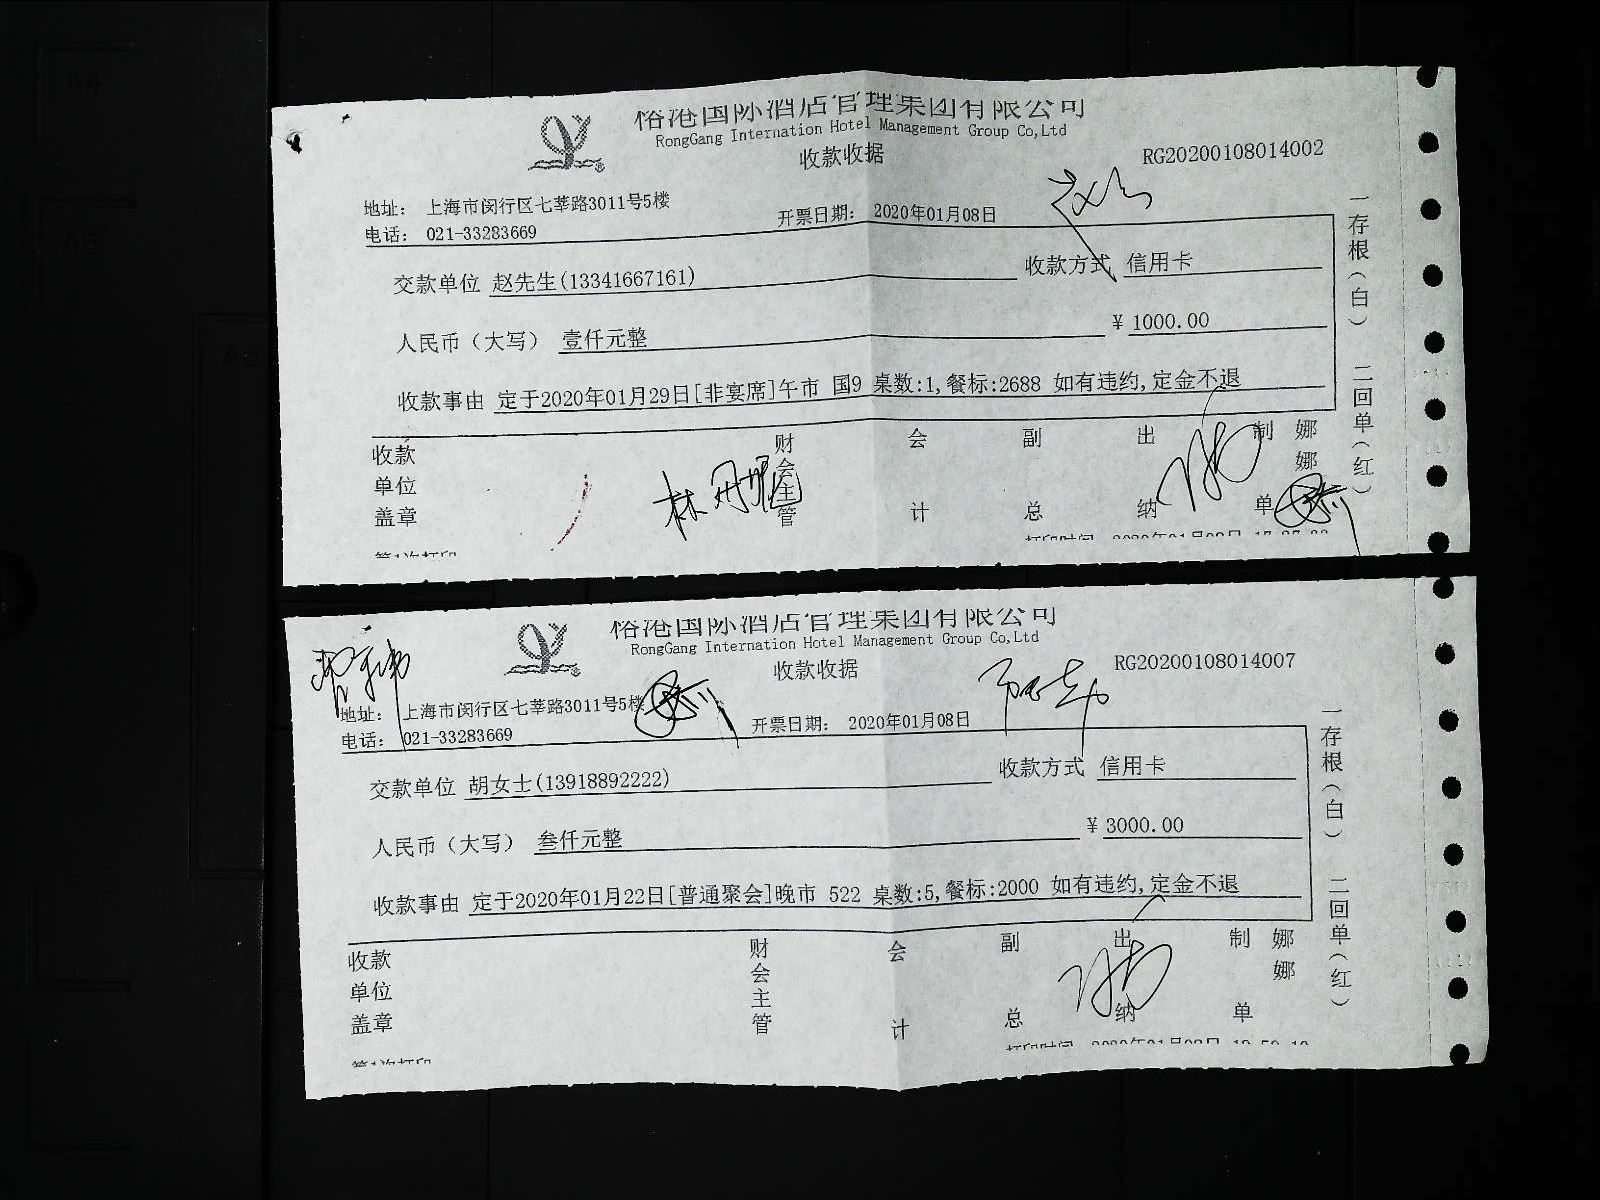 俗港国际酒店管理集团有限公司
RongGang Internation Hotel Management Group Co,Ltd
收款收据
RG20200108014002
地址： 上海市闵行区七莘路3011号5楼
电话： 021-33283669
开票日期： 2020年01月08日
交款单位 赵先生(13341667161)
收款方式 信用卡
人民币（大写） 壹仟元整
¥ 1000.00
收款事由 定于2020年01月29日[非宴席]午市 国9 桌数:1,餐标:2688 如有违约,定金不退
收款单位盖章
财会主管
会计
副总
出纳
制单
娜娜
一存根（白） 二回单（红）
第1次打印
俗港国际酒店管理集团有限公司
RongGang Internation Hotel Management Group Co,Ltd
收款收据
RG20200108014007
地址： 上海市闵行区七莘路3011号5楼
电话： 021-33283669
开票日期： 2020年01月08日
交款单位 胡女士(13918892222)
收款方式 信用卡
人民币（大写） 叁仟元整
¥ 3000.00
收款事由 定于2020年01月22日[普通聚会]晚市 522 桌数:5,餐标:2000 如有违约,定金不退
收款单位盖章
财会主管
会计
副总
出纳
制单
娜娜
一存根（白） 二回单（红）
第1次打印